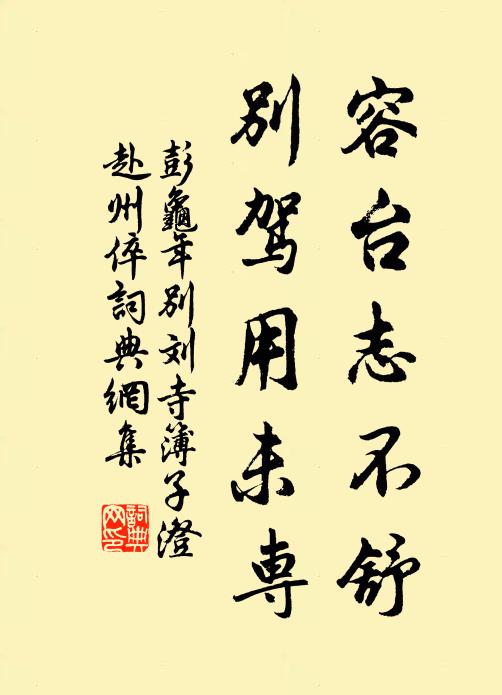 容台志不舒
别驾用未専
彭龜年别刘寺簿子澄
赴州倅詞典網集
詞典網印